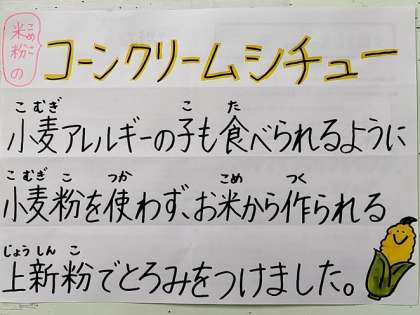 米粉の
こめこ
コーンクリームシチュー
こむぎ こ た
小麦アレルギーの子も食べられるように
こむぎ こ つか こめ つく
小麦粉を使わず、お米から作られる
じょうしん こ
上新粉でとろみをつけました。